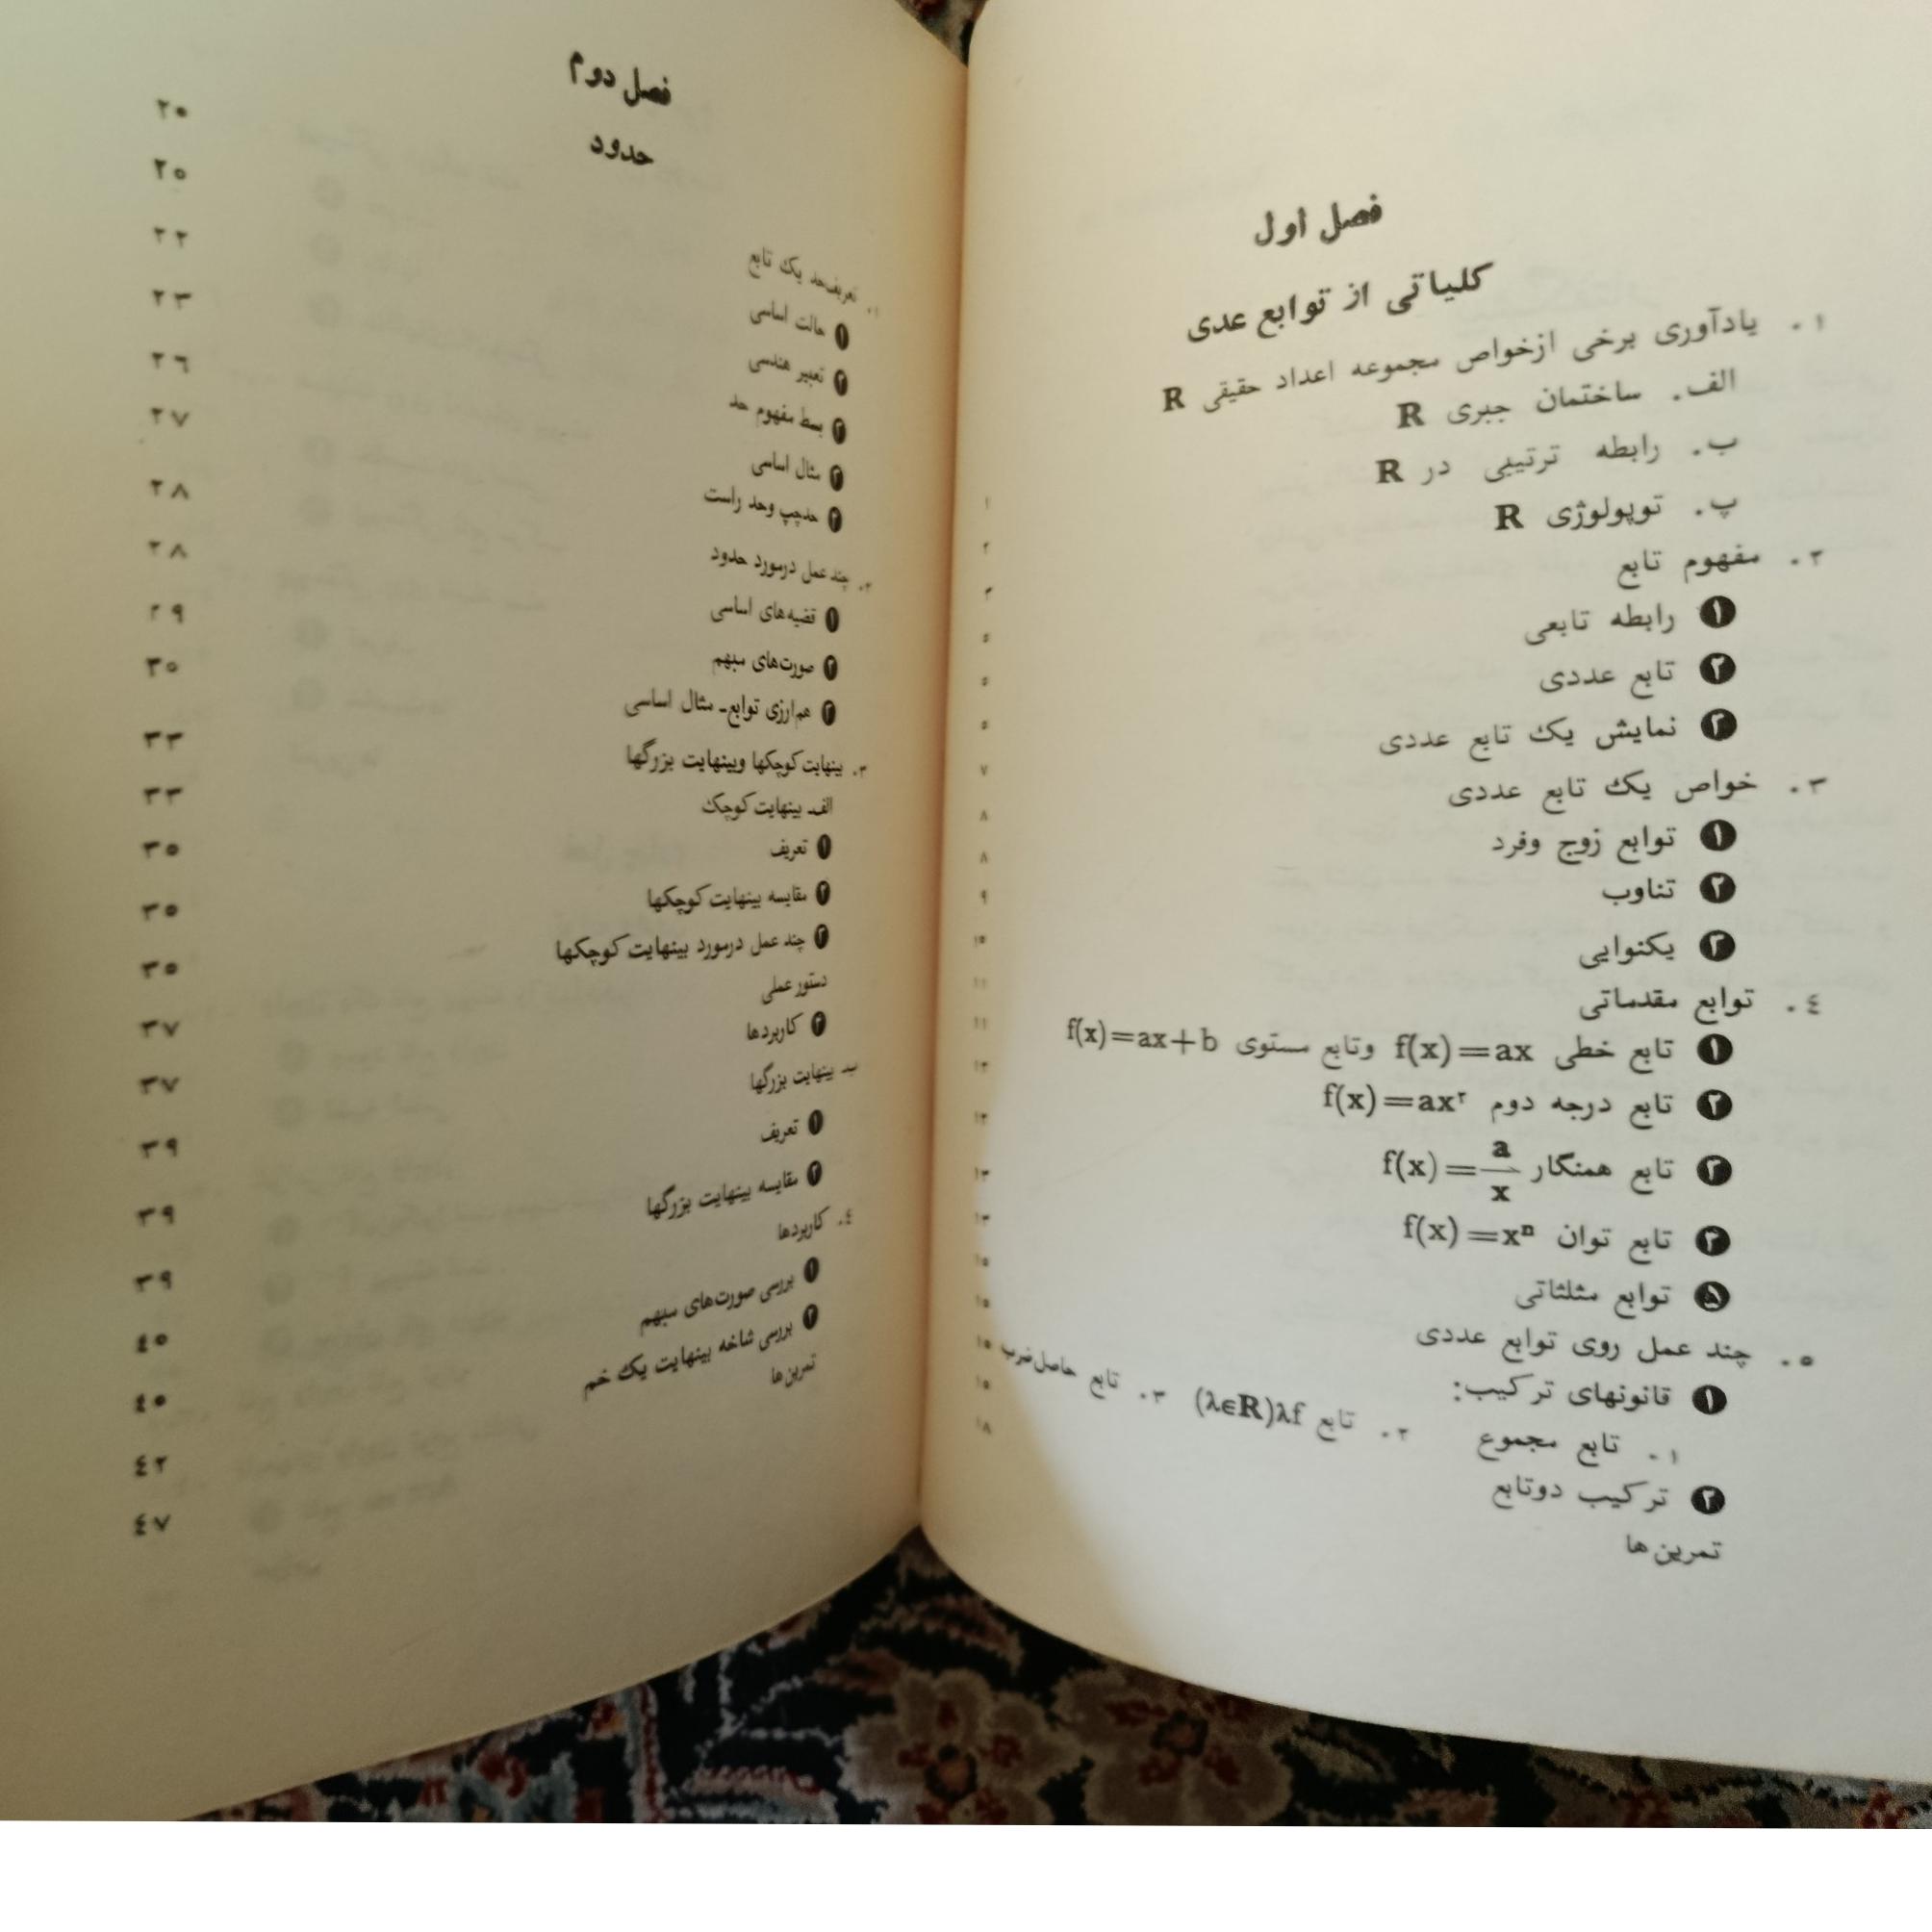 فصل اول
کلیاتی از توابع عددی
۱. یادآوری برخی ازخواص مجموعه اعداد حقیقی R
الف. ساختمان جبری R
ب. رابطه ترتیبی در R
پ. توپولوژی R
۲. مفهوم تابع
۱ رابطه تابعی
۲ تابع عددی
۳ نمایش یک تابع عددی
۳. خواص یک تابع عددی
۱ توابع زوج وفرد
۲ تناوب
۳ یکنوایی
۴. توابع مقدماتی
۱ تابع خطی f(x)=ax وتابع مستوی f(x)=ax+b
۲ تابع درجه دوم f(x)=ax۲
۳ تابع همنگار f(x)=a/x
۴ تابع توان f(x)=xⁿ
۵ توابع مثلثاتی
۵. چند عمل روی توابع عددی
۱ قانونهای ترکیب:
۱. تابع مجموع ۲. تابع λf(λ∈R) ۳. تابع حاصل‌ضرب
۲ ترکیب دوتابع
تمرین‌ها
فصل دوم
حدود
۱. تعریف‌حد یک تابع ۲۰
۱ حالت اساسی ۲۰
۲ تعبیر هندسی ۲۲
۳ بسط مفهوم حد ۲۳
۴ مثال اساسی ۲۶
حدچپ وحد راست ۲۷
۲. چند عمل درمورد حدود ۲۸
۱ قضیه‌های اساسی ۲۸
۲ صورت‌های مبهم ۲۹
۳ هم‌ارزی توابع- مثال اساسی ۳۰
۳. بینهایت کوچکها وبینهایت بزرگها ۳۳
الف- بینهایت کوچک ۳۳
۱ تعریف ۳۵
۲ مقایسه بینهایت کوچکها ۳۵
۳ چند عمل درمورد بینهایت کوچکها ۳۵
دستور عملی ۳۷
۴ کاربردها ۳۷
ب- بینهایت بزرگها ۳۹
۱ تعریف ۳۹
۲ مقایسه بینهایت بزرگها ۳۹
۴. کاربردها ۴۰
۱ بررسی صورت‌های مبهم ۴۰
۲ بررسی شاخه بینهایت یک خم ۴۲
تمرین‌ها ۴۷